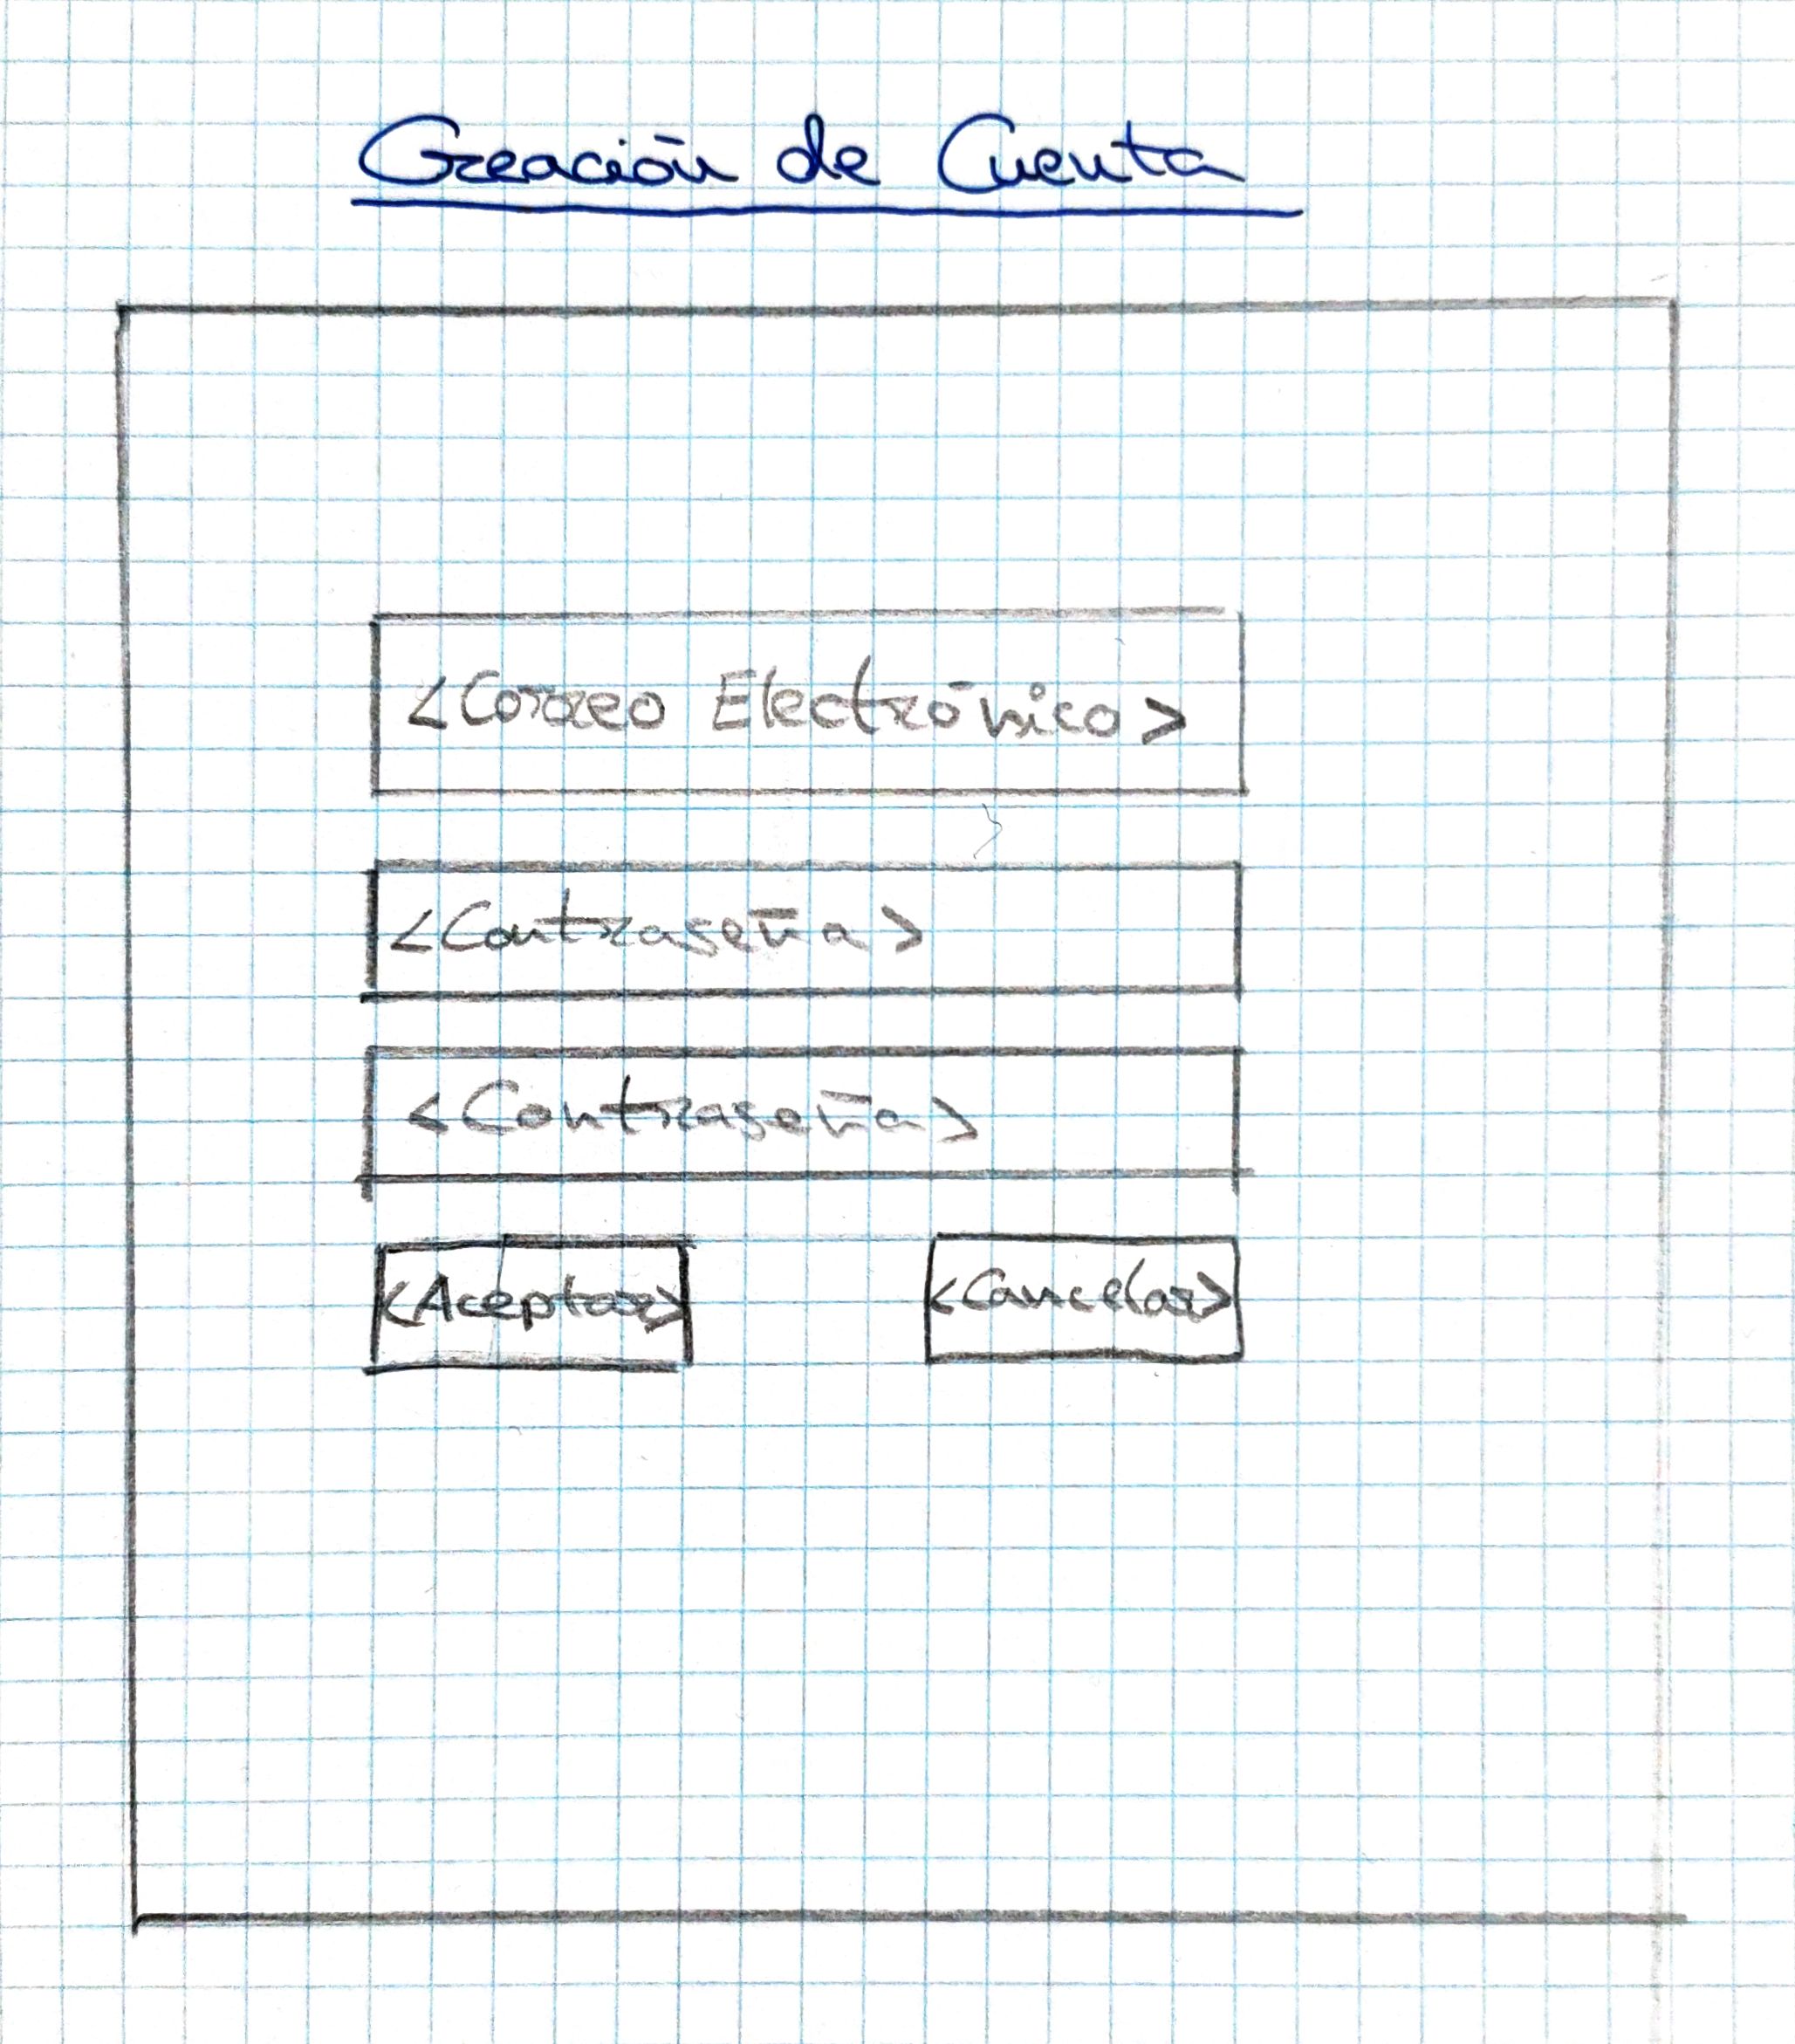 Creación de Cuenta
<Correo Electrónico>
<Contraseña>
<Contraseña>
<Aceptar> <Cancelar>